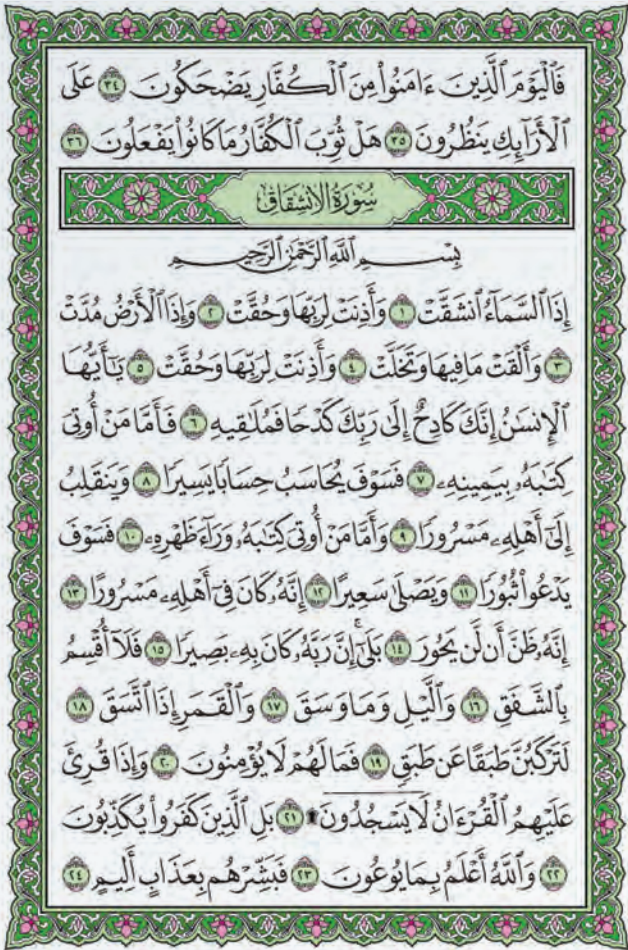 فَٱلْيَوْمَ ٱلَّذِينَ ءَامَنُوا۟ مِنَ ٱلْكُفَّارِ يَضْحَكُونَ ٣٤ عَلَى
ٱلْأَرَآئِكِ يَنظُرُونَ ٣٥ هَلْ ثُوِّبَ ٱلْكُفَّارُ مَا كَانُوا۟ يَفْعَلُونَ ٣٦
سُورَةُ الانْشِقَاقِ
بِسْمِ ٱللَّهِ ٱلرَّحْمَٰنِ ٱلرَّحِيمِ
إِذَا ٱلسَّمَآءُ ٱنشَقَّتْ ١ وَأَذِنَتْ لِرَبِّهَا وَحُقَّتْ ٢ وَإِذَا ٱلْأَرْضُ مُدَّتْ
٣ وَأَلْقَتْ مَا فِيهَا وَتَخَلَّتْ ٤ وَأَذِنَتْ لِرَبِّهَا وَحُقَّتْ ٥ يَٰٓأَيُّهَا
ٱلْإِنسَٰنُ إِنَّكَ كَادِحٌ إِلَىٰ رَبِّكَ كَدْحًا فَمُلَٰقِيهِ ٦ فَأَمَّا مَنْ أُوتِىَ
كِتَٰبَهُۥ بِيَمِينِهِۦ ٧ فَسَوْفَ يُحَاسَبُ حِسَابًا يَسِيرًا ٨ وَيَنقَلِبُ
إِلَىٰٓ أَهْلِهِۦ مَسْرُورًا ٩ وَأَمَّا مَنْ أُوتِىَ كِتَٰبَهُۥ وَرَآءَ ظَهْرِهِۦ ١٠ فَسَوْفَ
يَدْعُوا۟ ثُبُورًا ١١ وَيَصْلَىٰ سَعِيرًا ١٢ إِنَّهُۥ كَانَ فِىٓ أَهْلِهِۦ مَسْرُورًا ١٣
إِنَّهُۥ ظَنَّ أَن لَّن يَحُورَ ١٤ بَلَىٰٓ ۚ إِنَّ رَبَّهُۥ كَانَ بِهِۦ بَصِيرًا ١٥ فَلَآ أُقْسِمُ
بِٱلشَّفَقِ ١٦ وَٱلَّيْلِ وَمَا وَسَقَ ١٧ وَٱلْقَمَرِ إِذَا ٱتَّسَقَ ١٨
لَتَرْكَبُنَّ طَبَقًا عَن طَبَقٍ ١٩ فَمَا لَهُمْ لَا يُؤْمِنُونَ ٢٠ وَإِذَا قُرِئَ
عَلَيْهِمُ ٱلْقُرْءَانُ لَا يَسْجُدُونَ ۩ ٢١ بَلِ ٱلَّذِينَ كَفَرُوا۟ يُكَذِّبُونَ
٢٢ وَٱللَّهُ أَعْلَمُ بِمَا يُوعُونَ ٢٣ فَبَشِّرْهُم بِعَذَابٍ أَلِيمٍ ٢٤